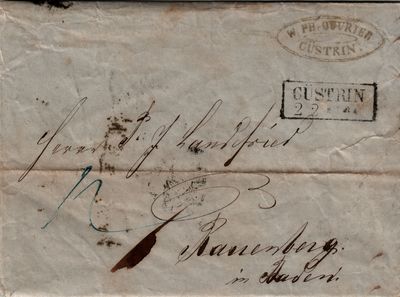 W. PH. OUVRIER
CÜSTRIN.
CÜSTRIN
22
Herrn P. J. Landfried
Rauenberg.
in Baden.